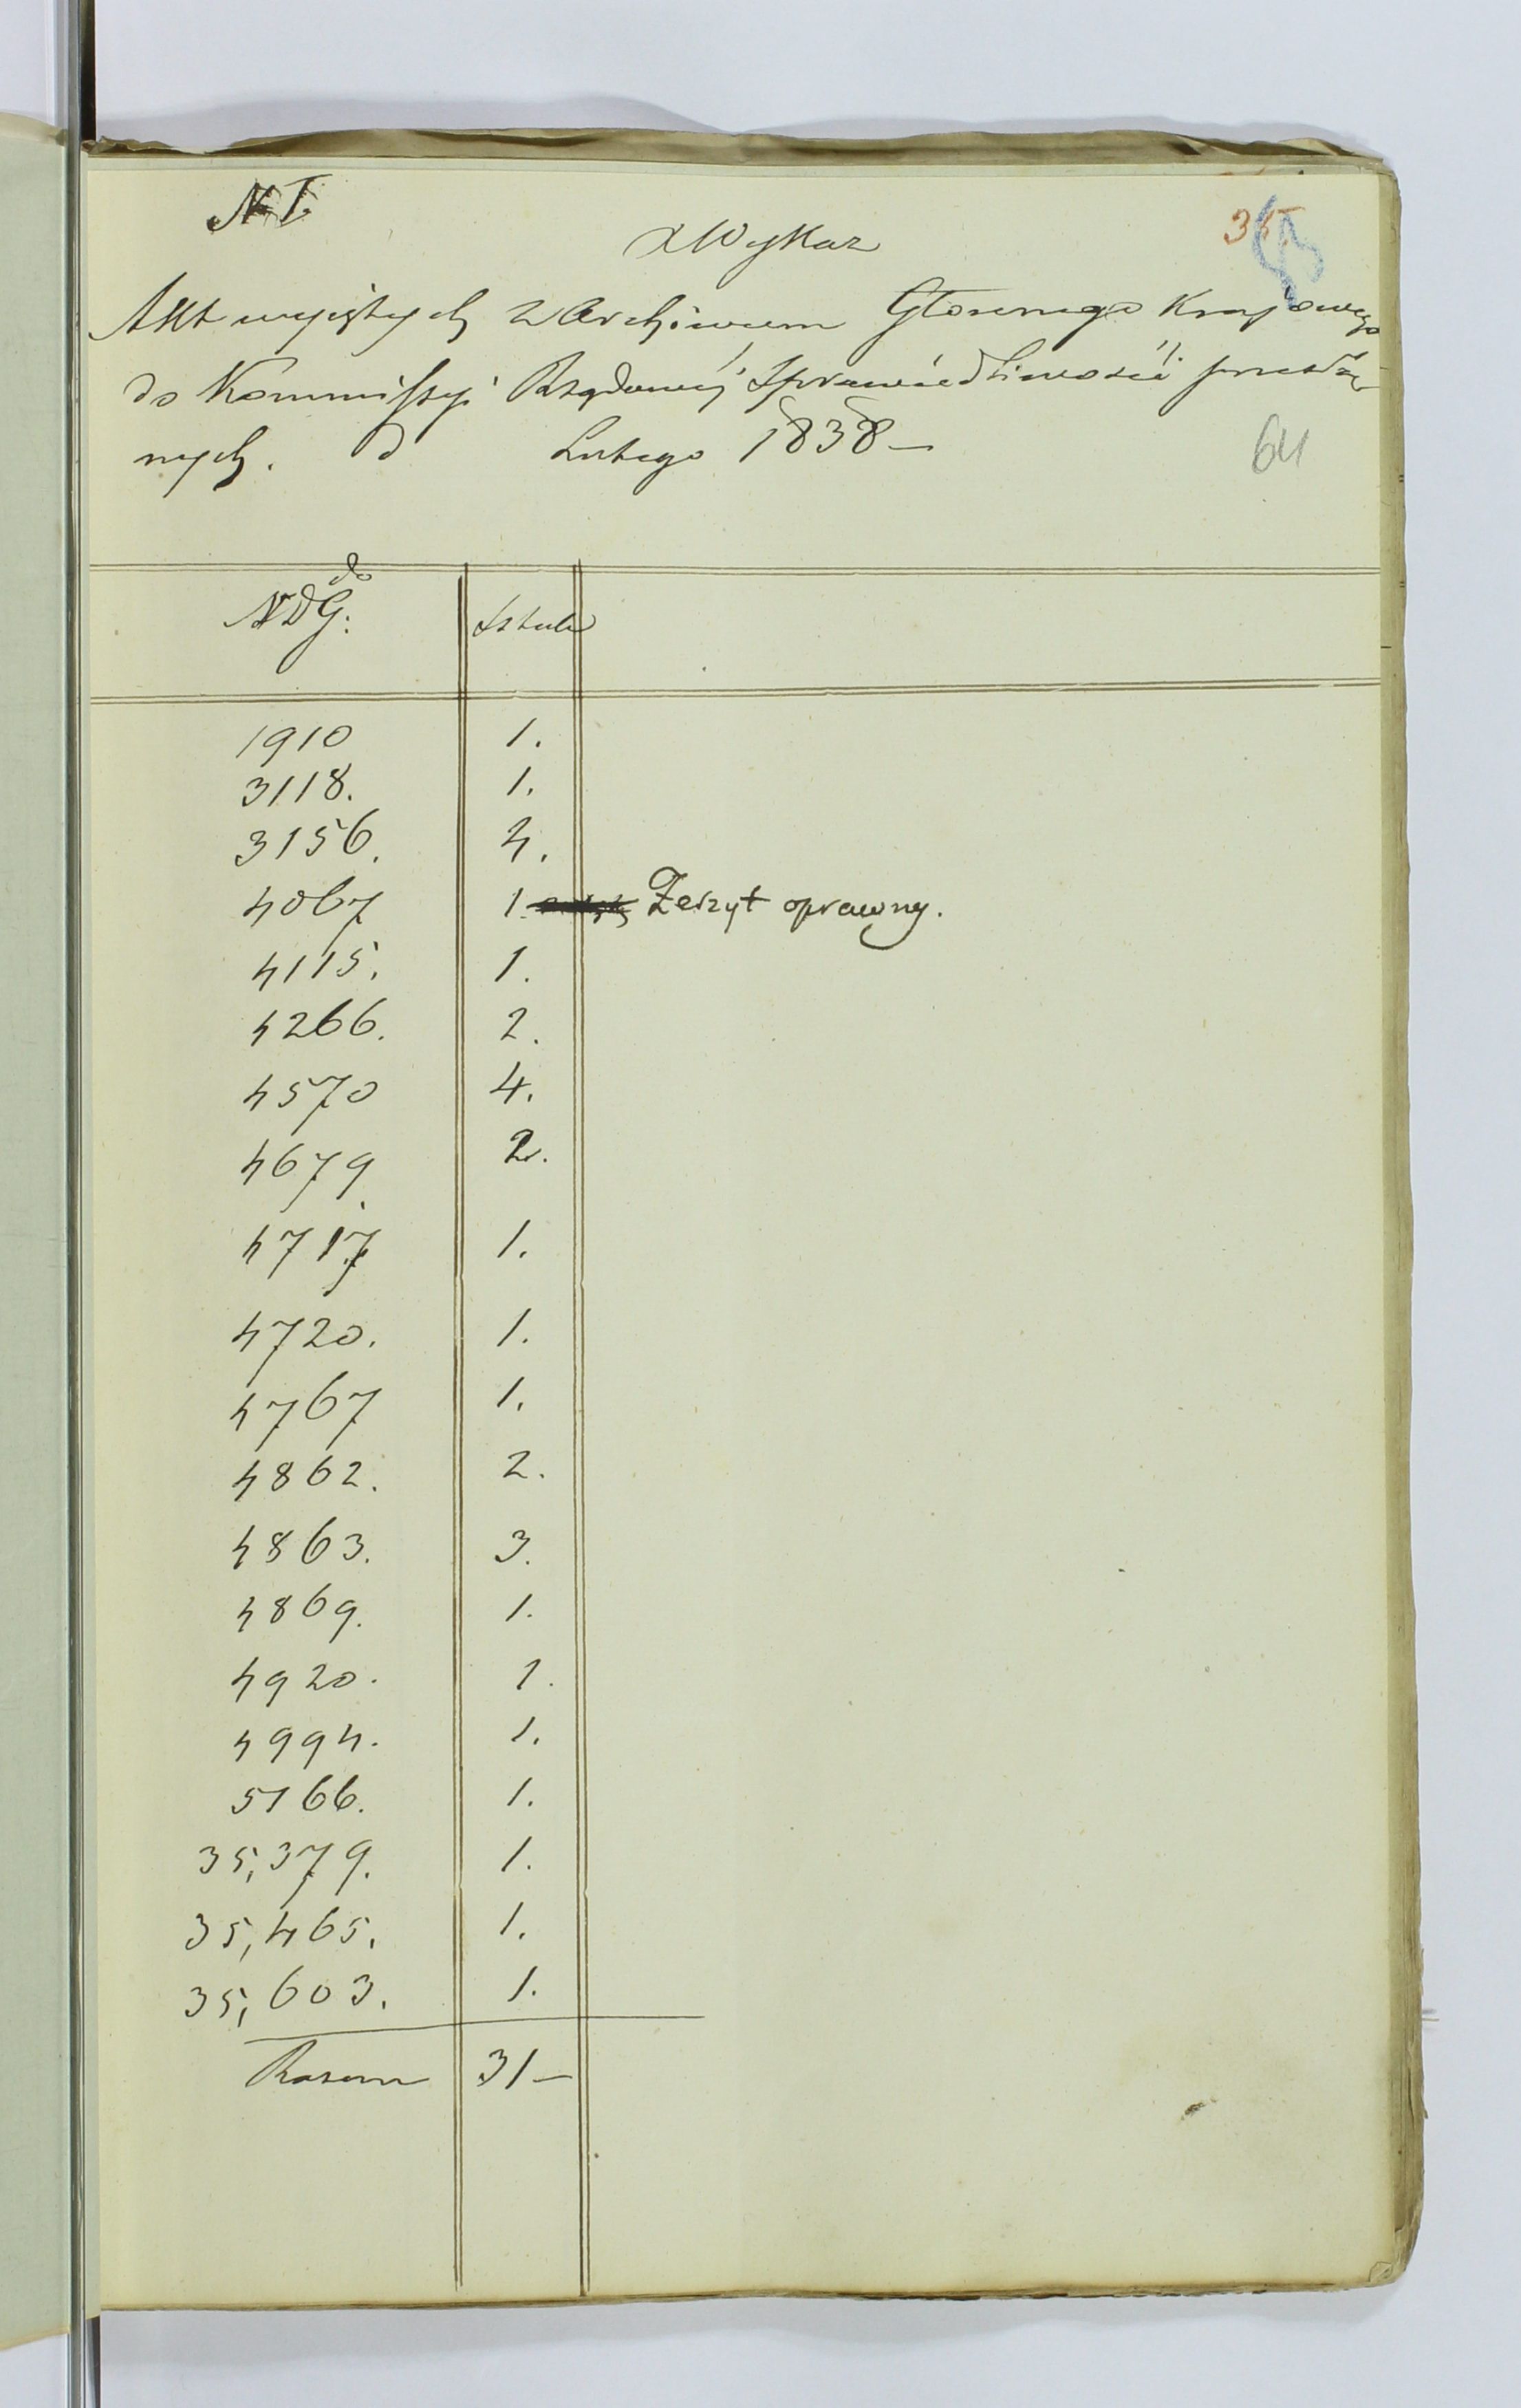 N I.
Wykaz
Akt wyiętych z Archiwum Głównego Krajowego
do Kommissyi Rządowéj Sprawiedliwości przesła-
nych. d Lutego 1838 –
64
do
NDG: Sztuk
1910 1.
3118. 1.
3156. 4.
4067 1. Zeszyt oprawny.
4115. 1.
4266. 2.
4570 4.
4679 2.
4717 1.
4720. 1.
4767 1.
4862. 2.
4863. 3.
4869. 1.
4920. 1.
4994. 1.
5166. 1.
35,379. 1.
35,465. 1.
35,603. 1.
Razem 31 –